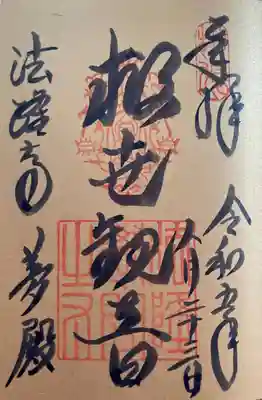 奉拝
令和五年
八月二十三日
救世観音
法隆寺
夢殿